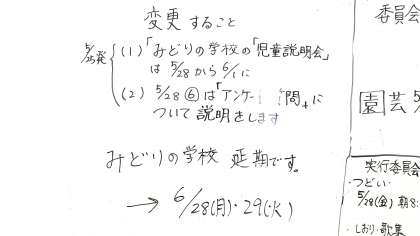 変更すること
5/25発
(1)「みどりの学校の「児童説明会」
は 5/28 から 6/1 に
(2) 5/28 ⑥は「アンケー 問 に
ついて 説明をします
みどりの学校 延期です。
→ 6/28(月)・29(火)
委員会
園芸 5/
実行委員会
・つどい・
5/28(金) 朝8:
・しおり・歌集